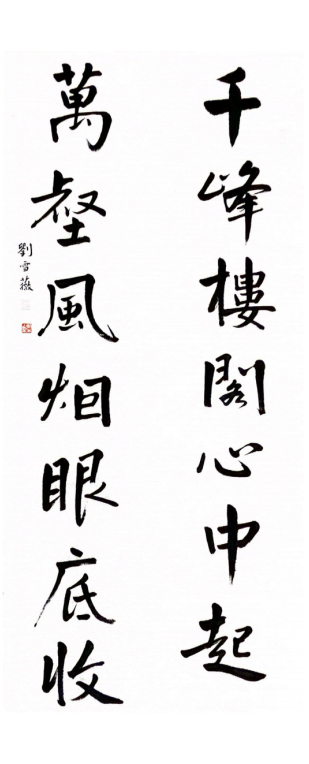 千峰樓閣心中起
萬壑風烟眼底收
劉雪薇